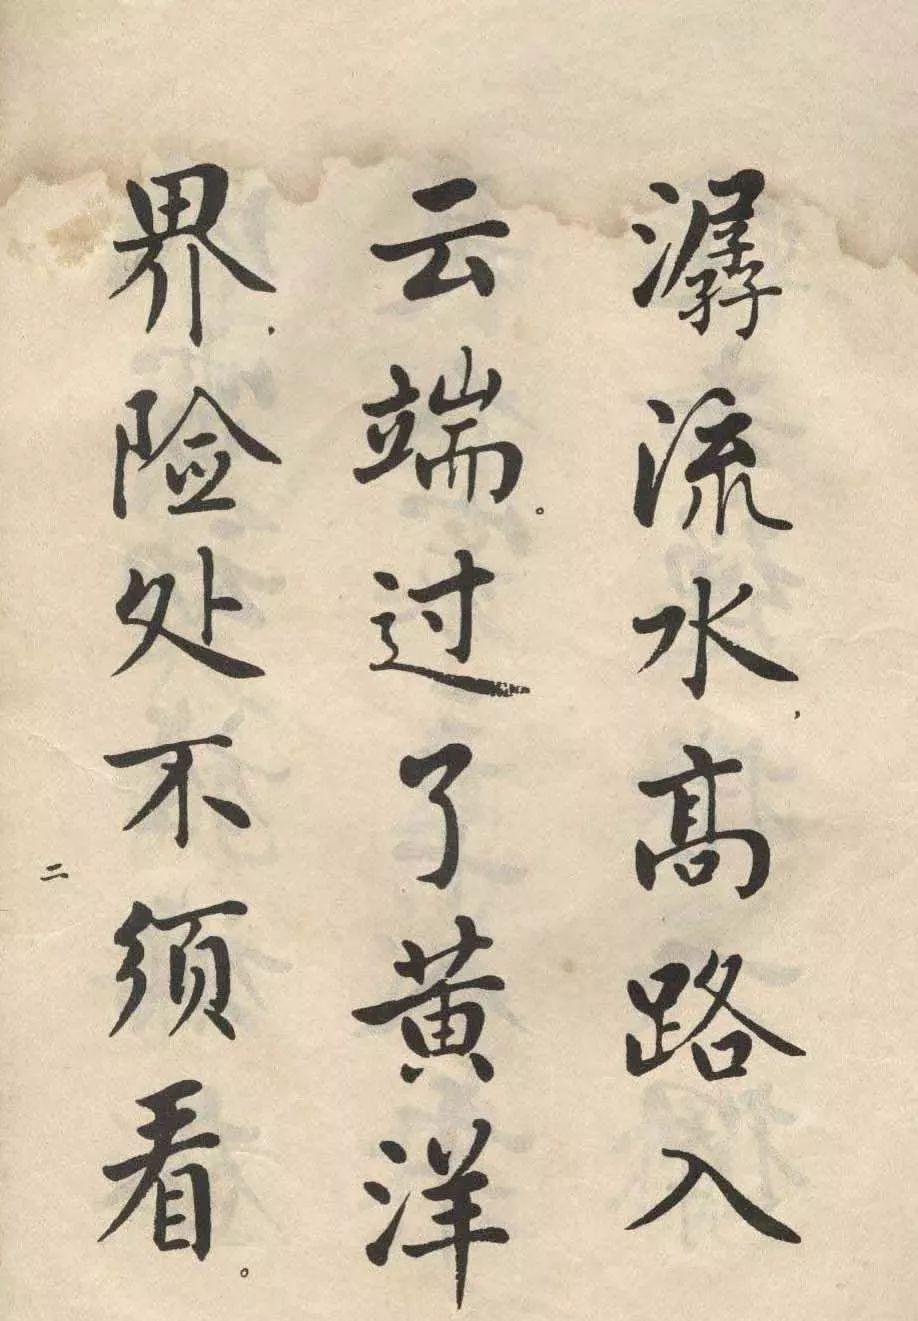 潺流水,高路入
云端。过了黄洋
界,险处不须看。
二